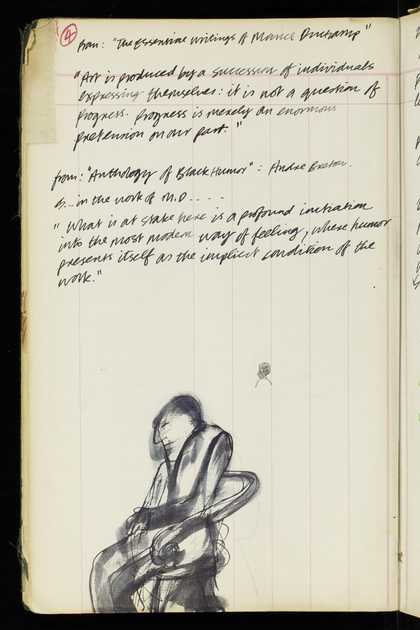 4
from: "The Essential writings of Marcel Duchamp"
"Art is produced by a succession of individuals
expressing themselves: it is not a question of
progress. Progress is merely an enormous
pretension on our part."
from: "Anthology of Black Humor": Andre Breton.
in the work of M.D.....
"What is at stake here is a profound initiation
into the most modern way of feeling, where humor
presents itself as the implicit condition of the
work."